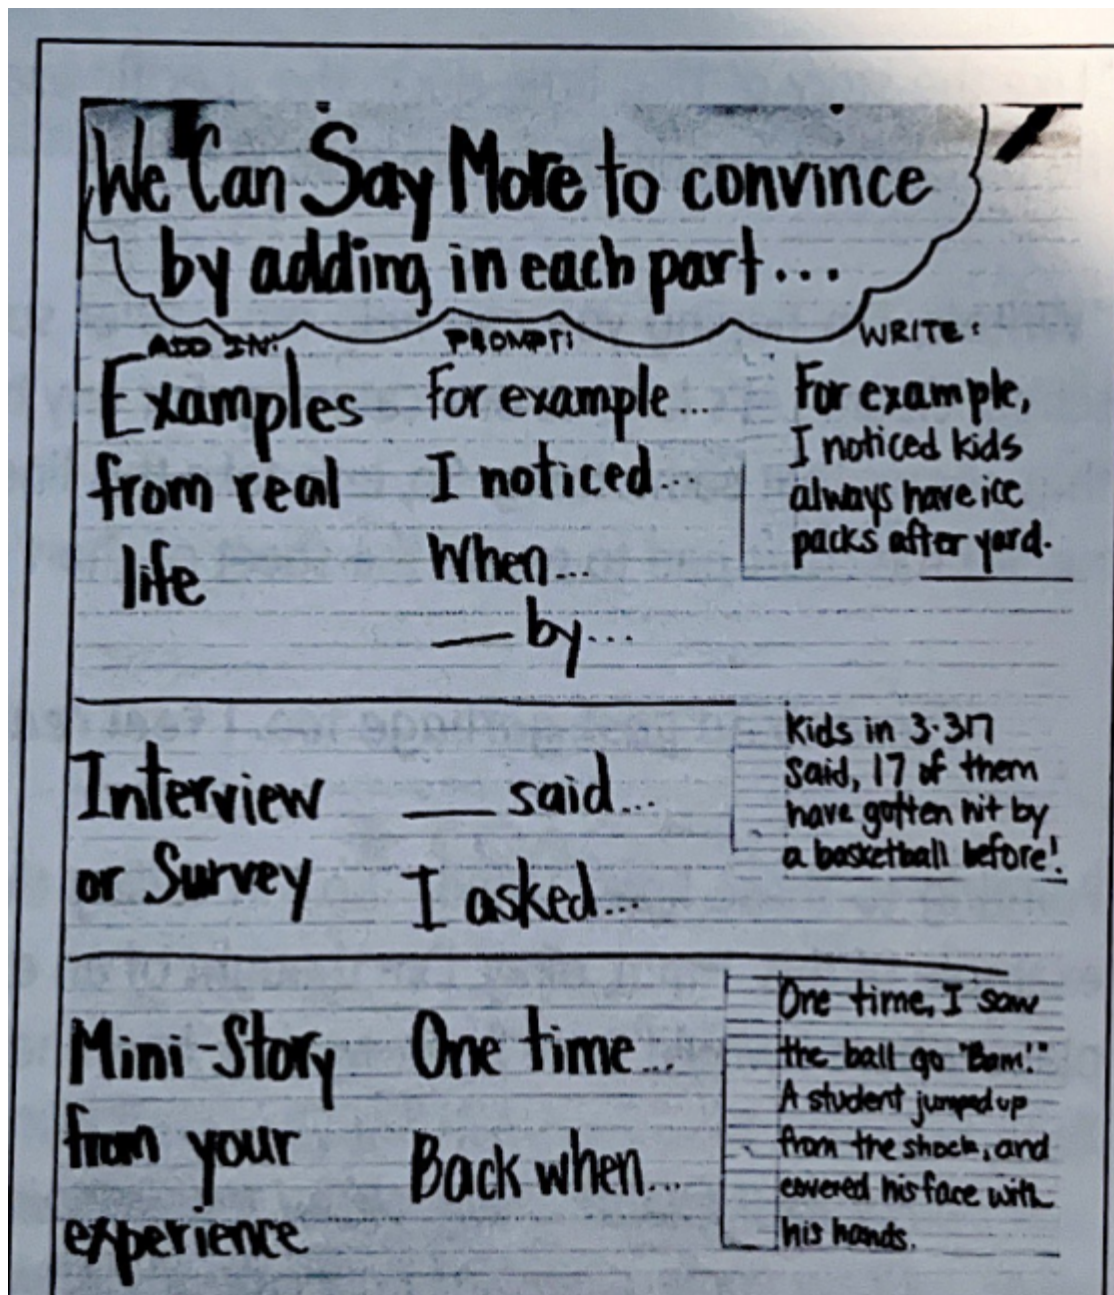 We Can Say More to convince
by adding in each part...
ADD IN:
Examples
from real
life
PROMPT:
For example...
I noticed...
When...
__ by...
WRITE:
For example,
I noticed kids
always have ice
packs after yard.
Interview
or Survey
__ said...
I asked...
Kids in 3-317
said, 17 of them
have gotten hit by
a basketball before!
Mini-Story
from your
experience
One time...
Back when...
One time, I saw
the ball go "Bam!"
A student jumped up
from the shock, and
covered his face with
his hands.